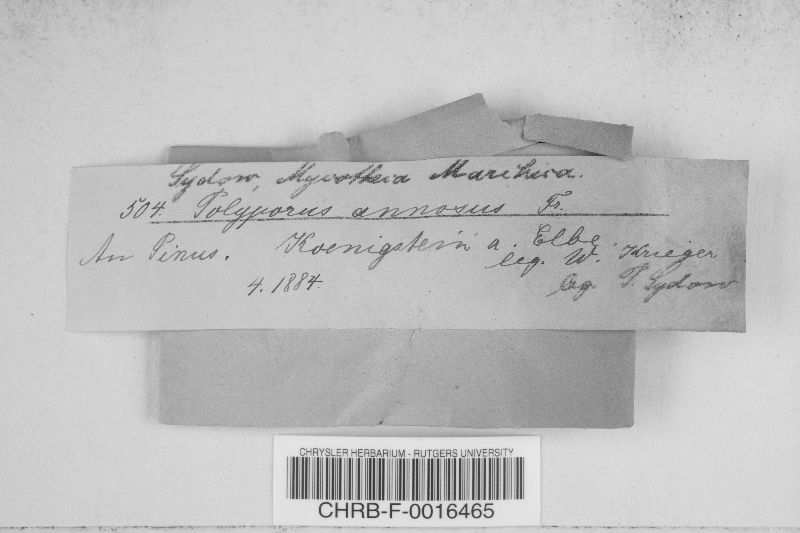 Sydow, Mycotheca Marchica.
504. Polyporus annosus Fr.
An Pinus. Koenigstein a. Elbe
leg. W. Krieger
4. 1884.
leg. P. Sydow
CHRYSLER HERBARIUM - RUTGERS UNIVERSITY
CHRB-F-0016465